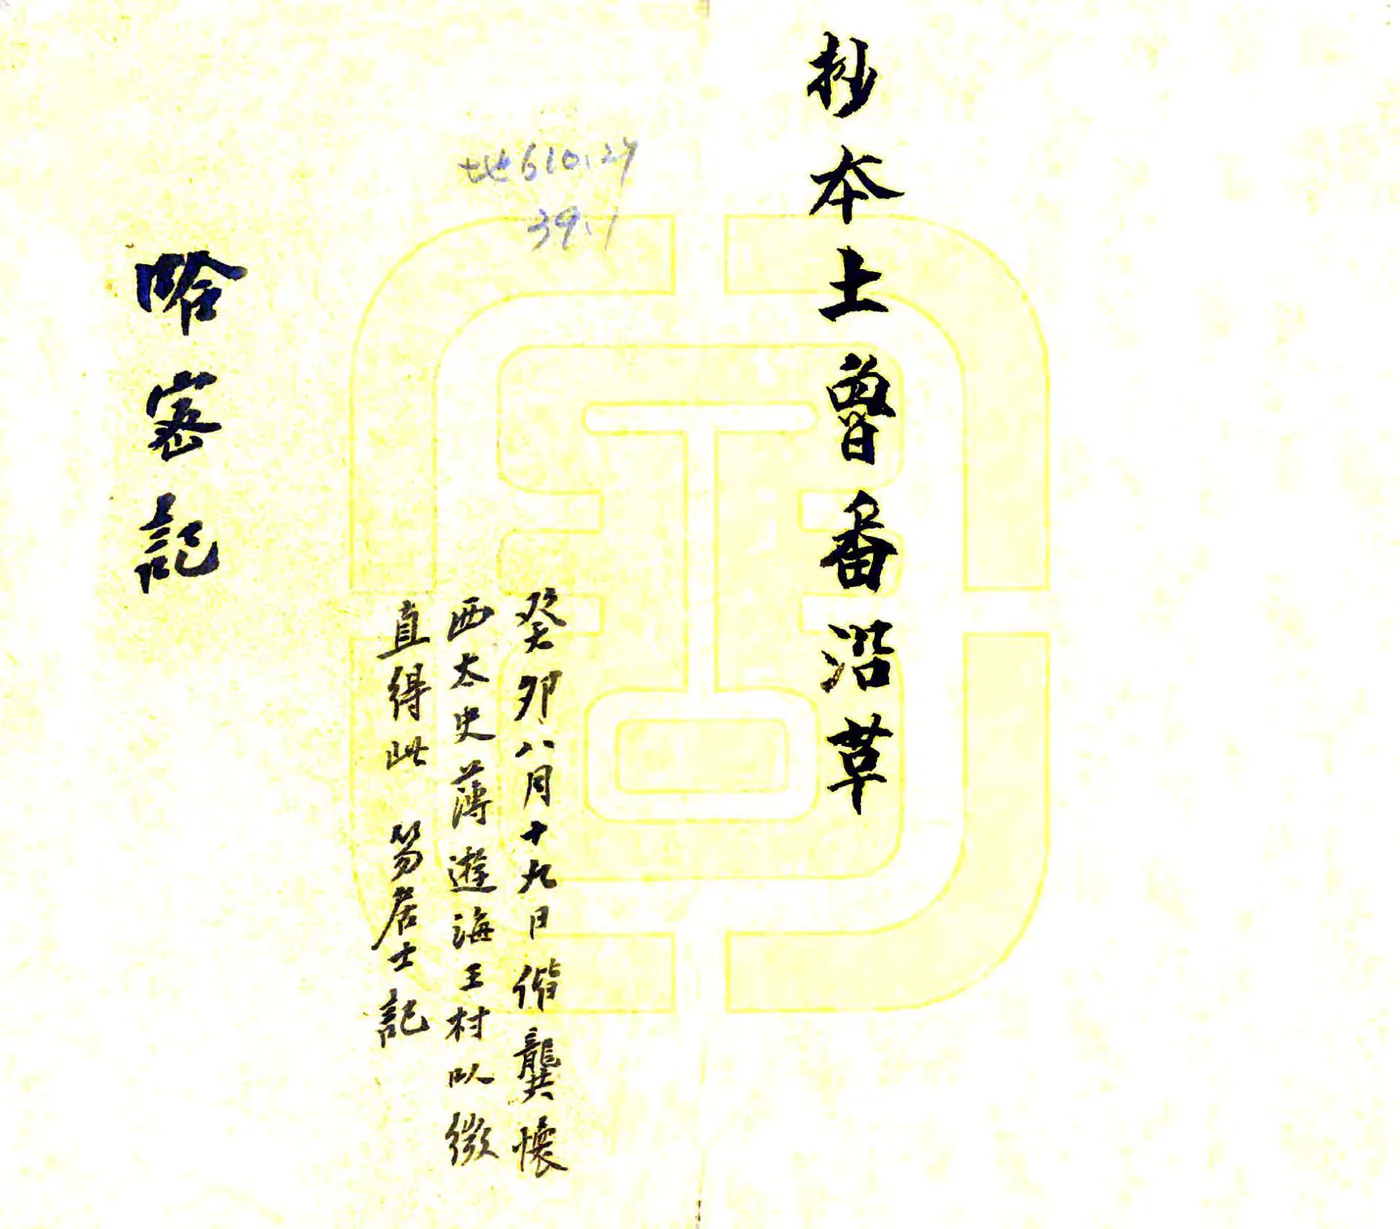 抄本土魯番沿革
地610.27
39.1
癸卯八月十九日偕龔懷
西太史薄遊海王村以微
直得此 笏居士記
哈密記